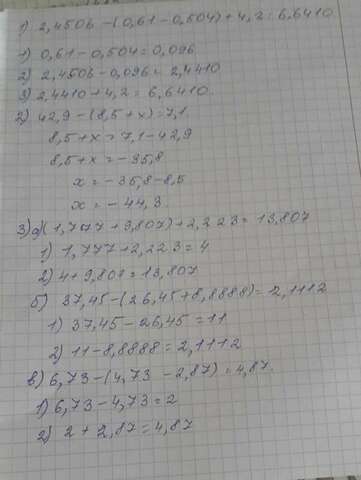 1) 2,4506 - (0,61 - 0,504) + 4,2 = 6,6410
1) 0,61 - 0,504 = 0,096
2) 2,4506 - 0,096 = 2,4410
3) 2,4410 + 4,2 = 6,6410.
2) 42,9 - (8,5 + x) = 7,1
8,5 + x = 7,1 - 42,9
8,5 + x = - 35,8
x = - 35,8 - 8,5
x = - 44,3
3) а) (1,777 + 9,807) + 2,223 = 13,807
1) 1,777 + 2,223 = 4
2) 4 + 9,807 = 13,807
б) 37,45 - (26,45 + 8,8888) = 2,1112
1) 37,45 - 26,45 = 11
2) 11 - 8,8888 = 2,1112
в) 6,73 - (4,73 - 2,87) = 4,87.
1) 6,73 - 4,73 = 2
2) 2 + 2,87 = 4,87